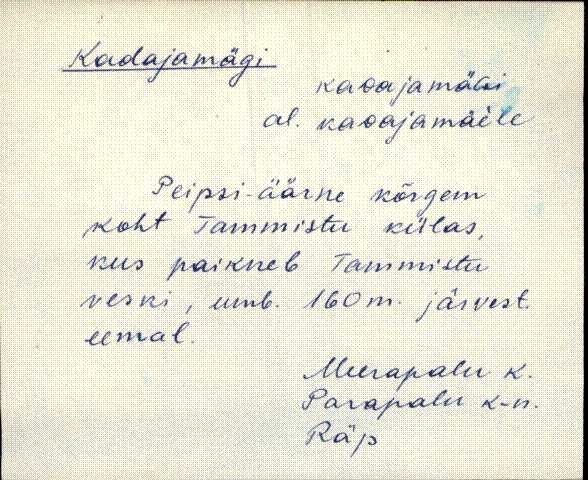 Kadajamägi
kadajamäGi
al. kadajamäèle
Peipsi-äärne kõrgem
koht Tammistu külas,
kus paikneb Tammistu
veski, umb. 160 m. järvest
eemal.
Meerapalu k.
Parapalu k-n.
Räp